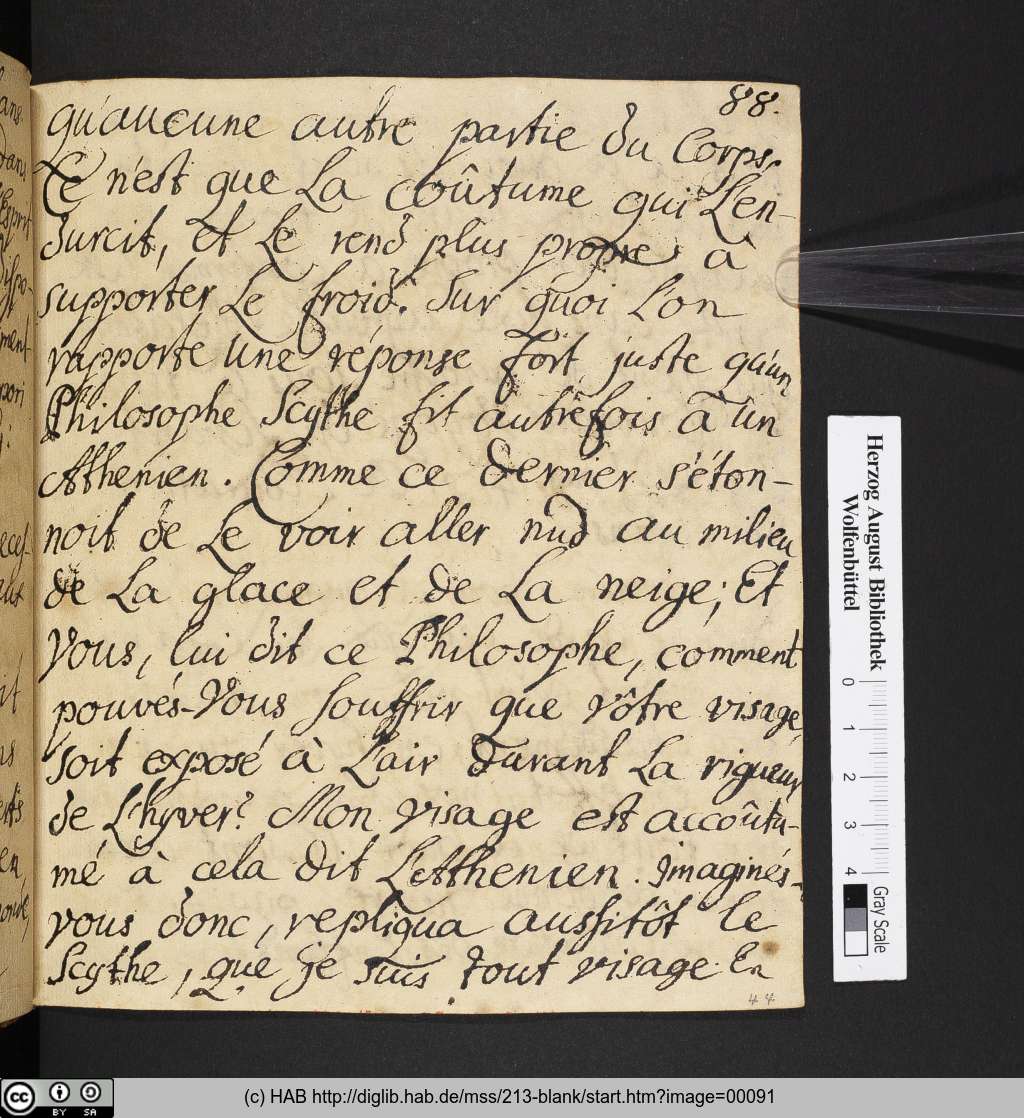 88.
qu'aucune autre partie du Corps.
Ce n'est que La coûtume qui L'en-
durcit, et Le rend plus propre à
supporter Le froid. Sur quoi L'on
rapporte Une réponse fort juste qu'un
Philosophe Scythe fit autrefois à un
Athenien. Comme ce dernier s'éton-
noit de Le voir aller nud au milieu
de La glace et de La neige; Et
Vous, lui dit ce Philosophe, comment
pouvés-Vous souffrir que vôtre visage
soit exposé à L'air Durant La rigueur
de L'hyver? Mon visage est accoûtu-
mé à cela dit L'Athenien. Imaginés-
vous donc, repliqua aussitôt le
Scythe, que je suis tout visage. En
44
Herzog August Bibliothek
Wolfenbüttel
0 1 2 3 4
Gray Scale
cc BY SA
(c) HAB http://diglib.hab.de/mss/213-blank/start.htm?image=00091